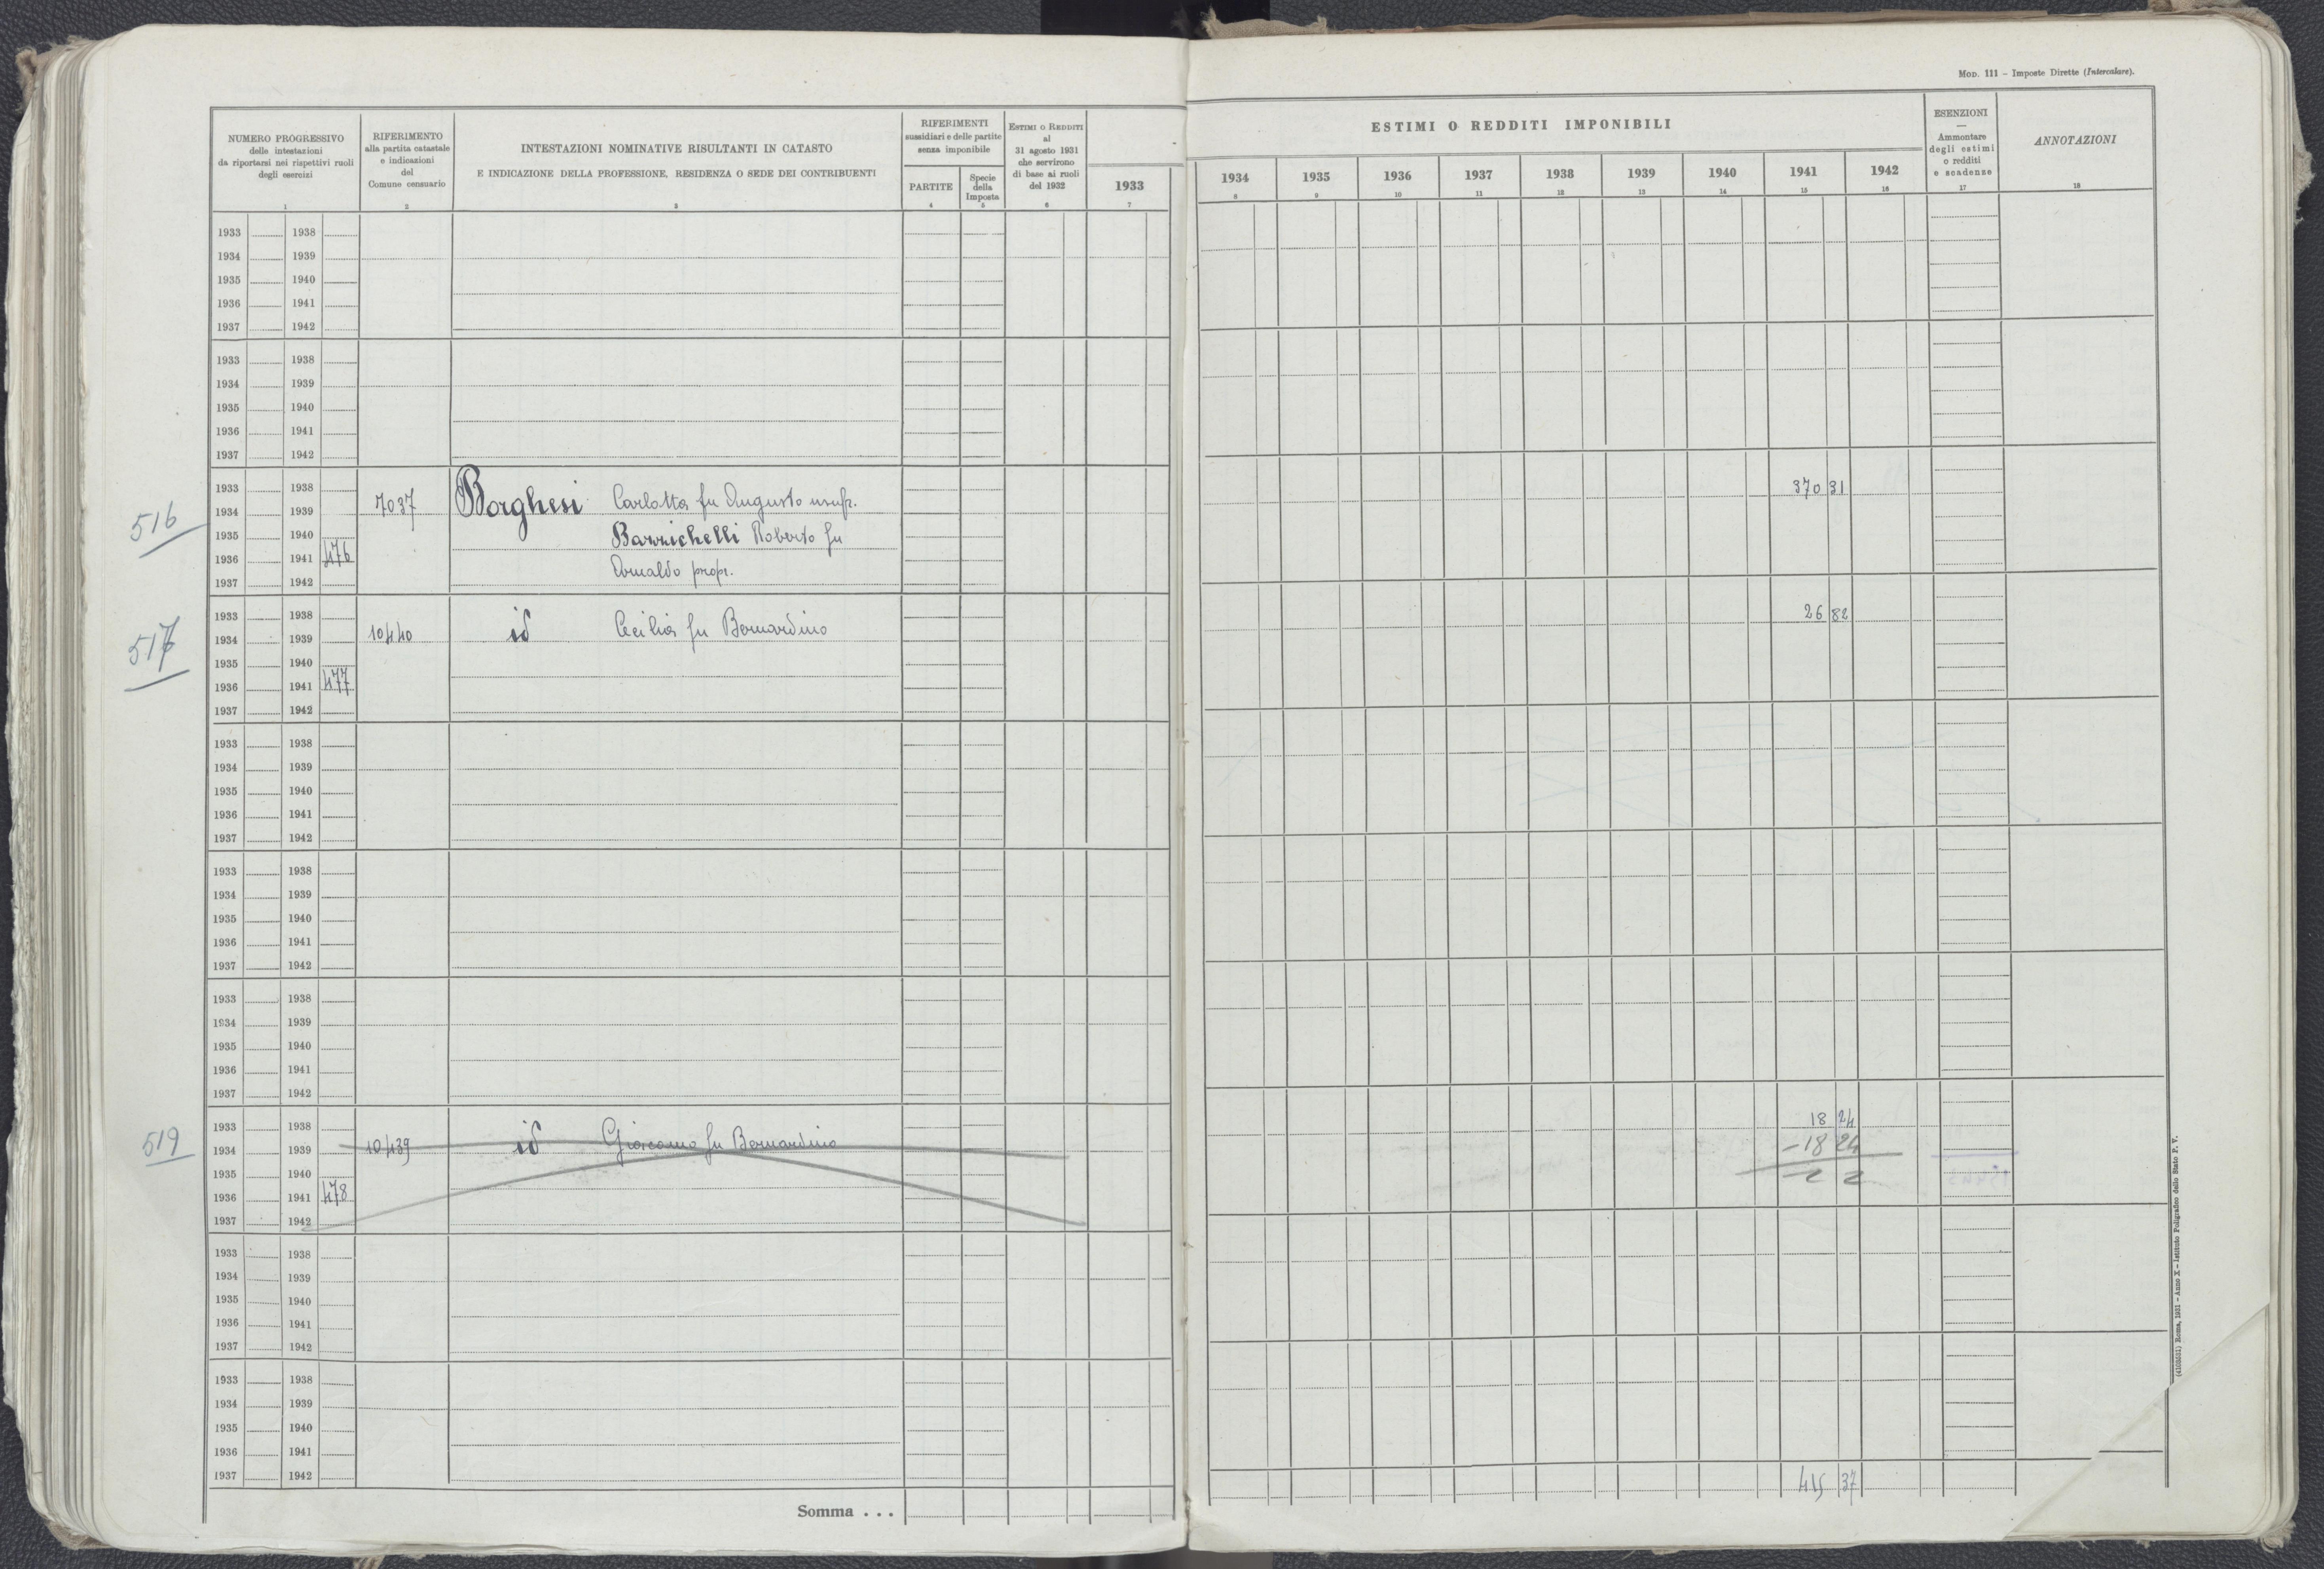 MOD. 111 – Imposte Dirette (Intercalare).
NUMERO PROGRESSIVO
delle intestazioni
da riportarsi nei rispettivi ruoli
degli esercizi
1
RIFERIMENTO
alla partita catastale
e indicazioni
del
Comune censuario
2
INTESTAZIONI NOMINATIVE RISULTANTI IN CATASTO
E INDICAZIONE DELLA PROFESSIONE, RESIDENZA O SEDE DEI CONTRIBUENTI
3
RIFERIMENTI
sussidiari e delle partite
senza imponibile
PARTITE
4
Specie
della
Imposta
5
ESTIMI O REDDITI
al
31 agosto 1931
che servirono
di base ai ruoli
del 1932
6
1933
7
ESTIMI O REDDITI IMPONIBILI
1934 1935 1936 1937 1938 1939 1940 1941 1942
8 9 10 11 12 13 14 15 16
ESENZIONI
—
Ammontare
degli estimi
o redditi
e scadenze
17
ANNOTAZIONI
18
1933 1938
1934 1939
1935 1940
1936 1941
1937 1942
1933 1938
1934 1939
1935 1940
1936 1941
1937 1942
516
1933 1938
1934 1939 7037 Borghesi Carlotta fu Augusto usufr. 370 31
1935 1940 Barzichelli Roberto fu
1936 1941 476
1937 1942 Romaldo propr.
517
1933 1938 26 82
1934 1939 10440 id Cecilia fu Bernardino
1935 1940
1936 1941 477
1937 1942
1933 1938
1934 1939
1935 1940
1936 1941
1937 1942
1933 1938
1934 1939
1935 1940
1936 1941
1937 1942
1933 1938
1934 1939
1935 1940
1936 1941
1937 1942
519
1933 1938 18 24
1934 1939 10439 id Giacomo fu Bernardino –18 24
1935 1940
1936 1941 478
1937 1942
1933 1938
1934 1939
1935 1940
1936 1941
1937 1942
1933 1938
1934 1939
1935 1940
1936 1941
1937 1942
Somma . . . 415 37
(4103531) Roma, 1931 – Anno X – Istituto Poligrafico dello Stato P. V.